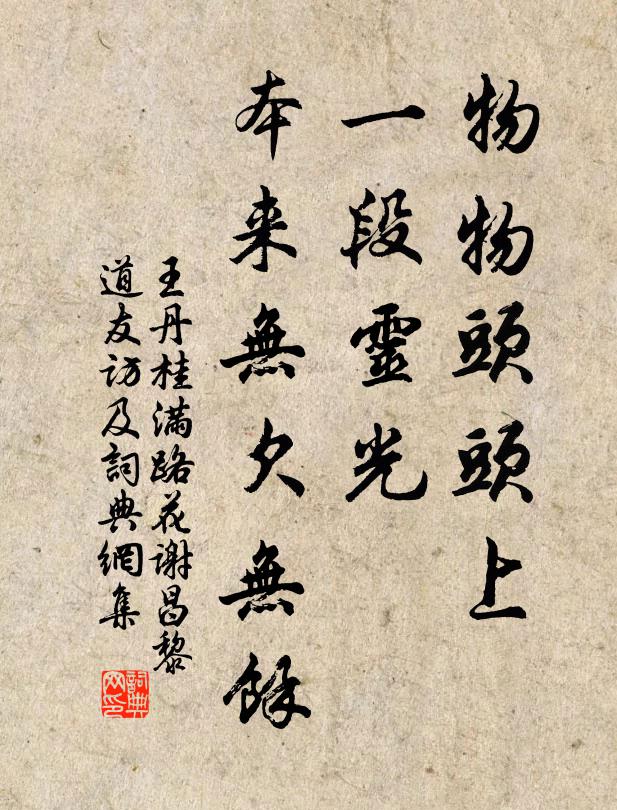 物物頭頭上
一段靈光
本来無欠無餘
王丹桂满路花谢昌黎
道友访及詞典網集
詞典
网印